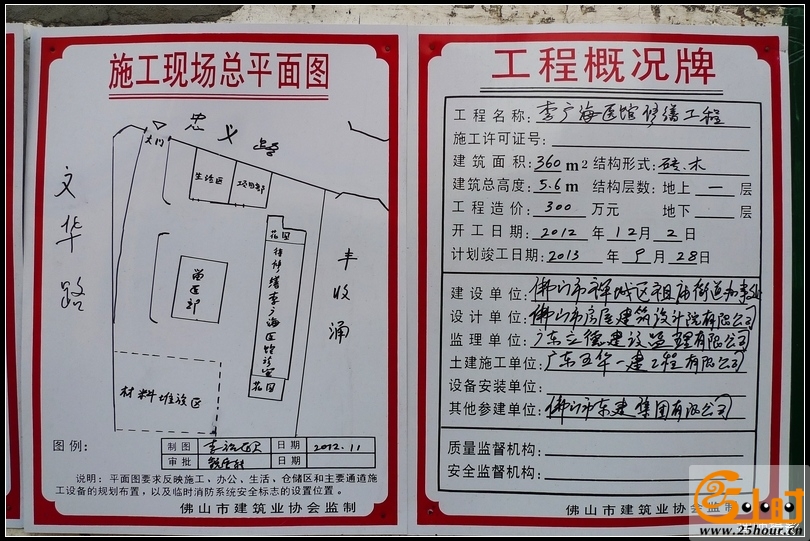 施工现场总平面图
忠义路
大门
文华路
生活区
项目部
花园
待修缮李广海医馆诊室
花园
丰收涌
材料堆放区
图例：
制图
日期
2012.11
审批
日期
说明：平面图要求反映施工、办公、生活、仓储区和主要通道施
工设备的规划布置，以及临时消防系统安全标志的设置位置。
佛山市建筑业协会监制
工程概况牌
工程名称：李广海医馆修缮工程
施工许可证号：
建筑面积：360 m2 结构形式：砖.木
建筑总高度：5.6 m 结构层数：地上 一 层
工程造价：300 万元 地下 层
开工日期：2012 年 12 月 2 日
计划竣工日期：2013 年 9 月 28 日
建设单位：佛山市禅城区祖庙街道办事处
设计单位：佛山市房屋建筑设计院有限公司
监理单位：广东立德建设监理有限公司
土建施工单位：广东五华一建工程有限公司
设备安装单位：
其他参建单位：佛山市东建集团有限公司
质量监督机构：
安全监督机构：
佛山市建筑业协会监制
25小时
www.25hour.cn